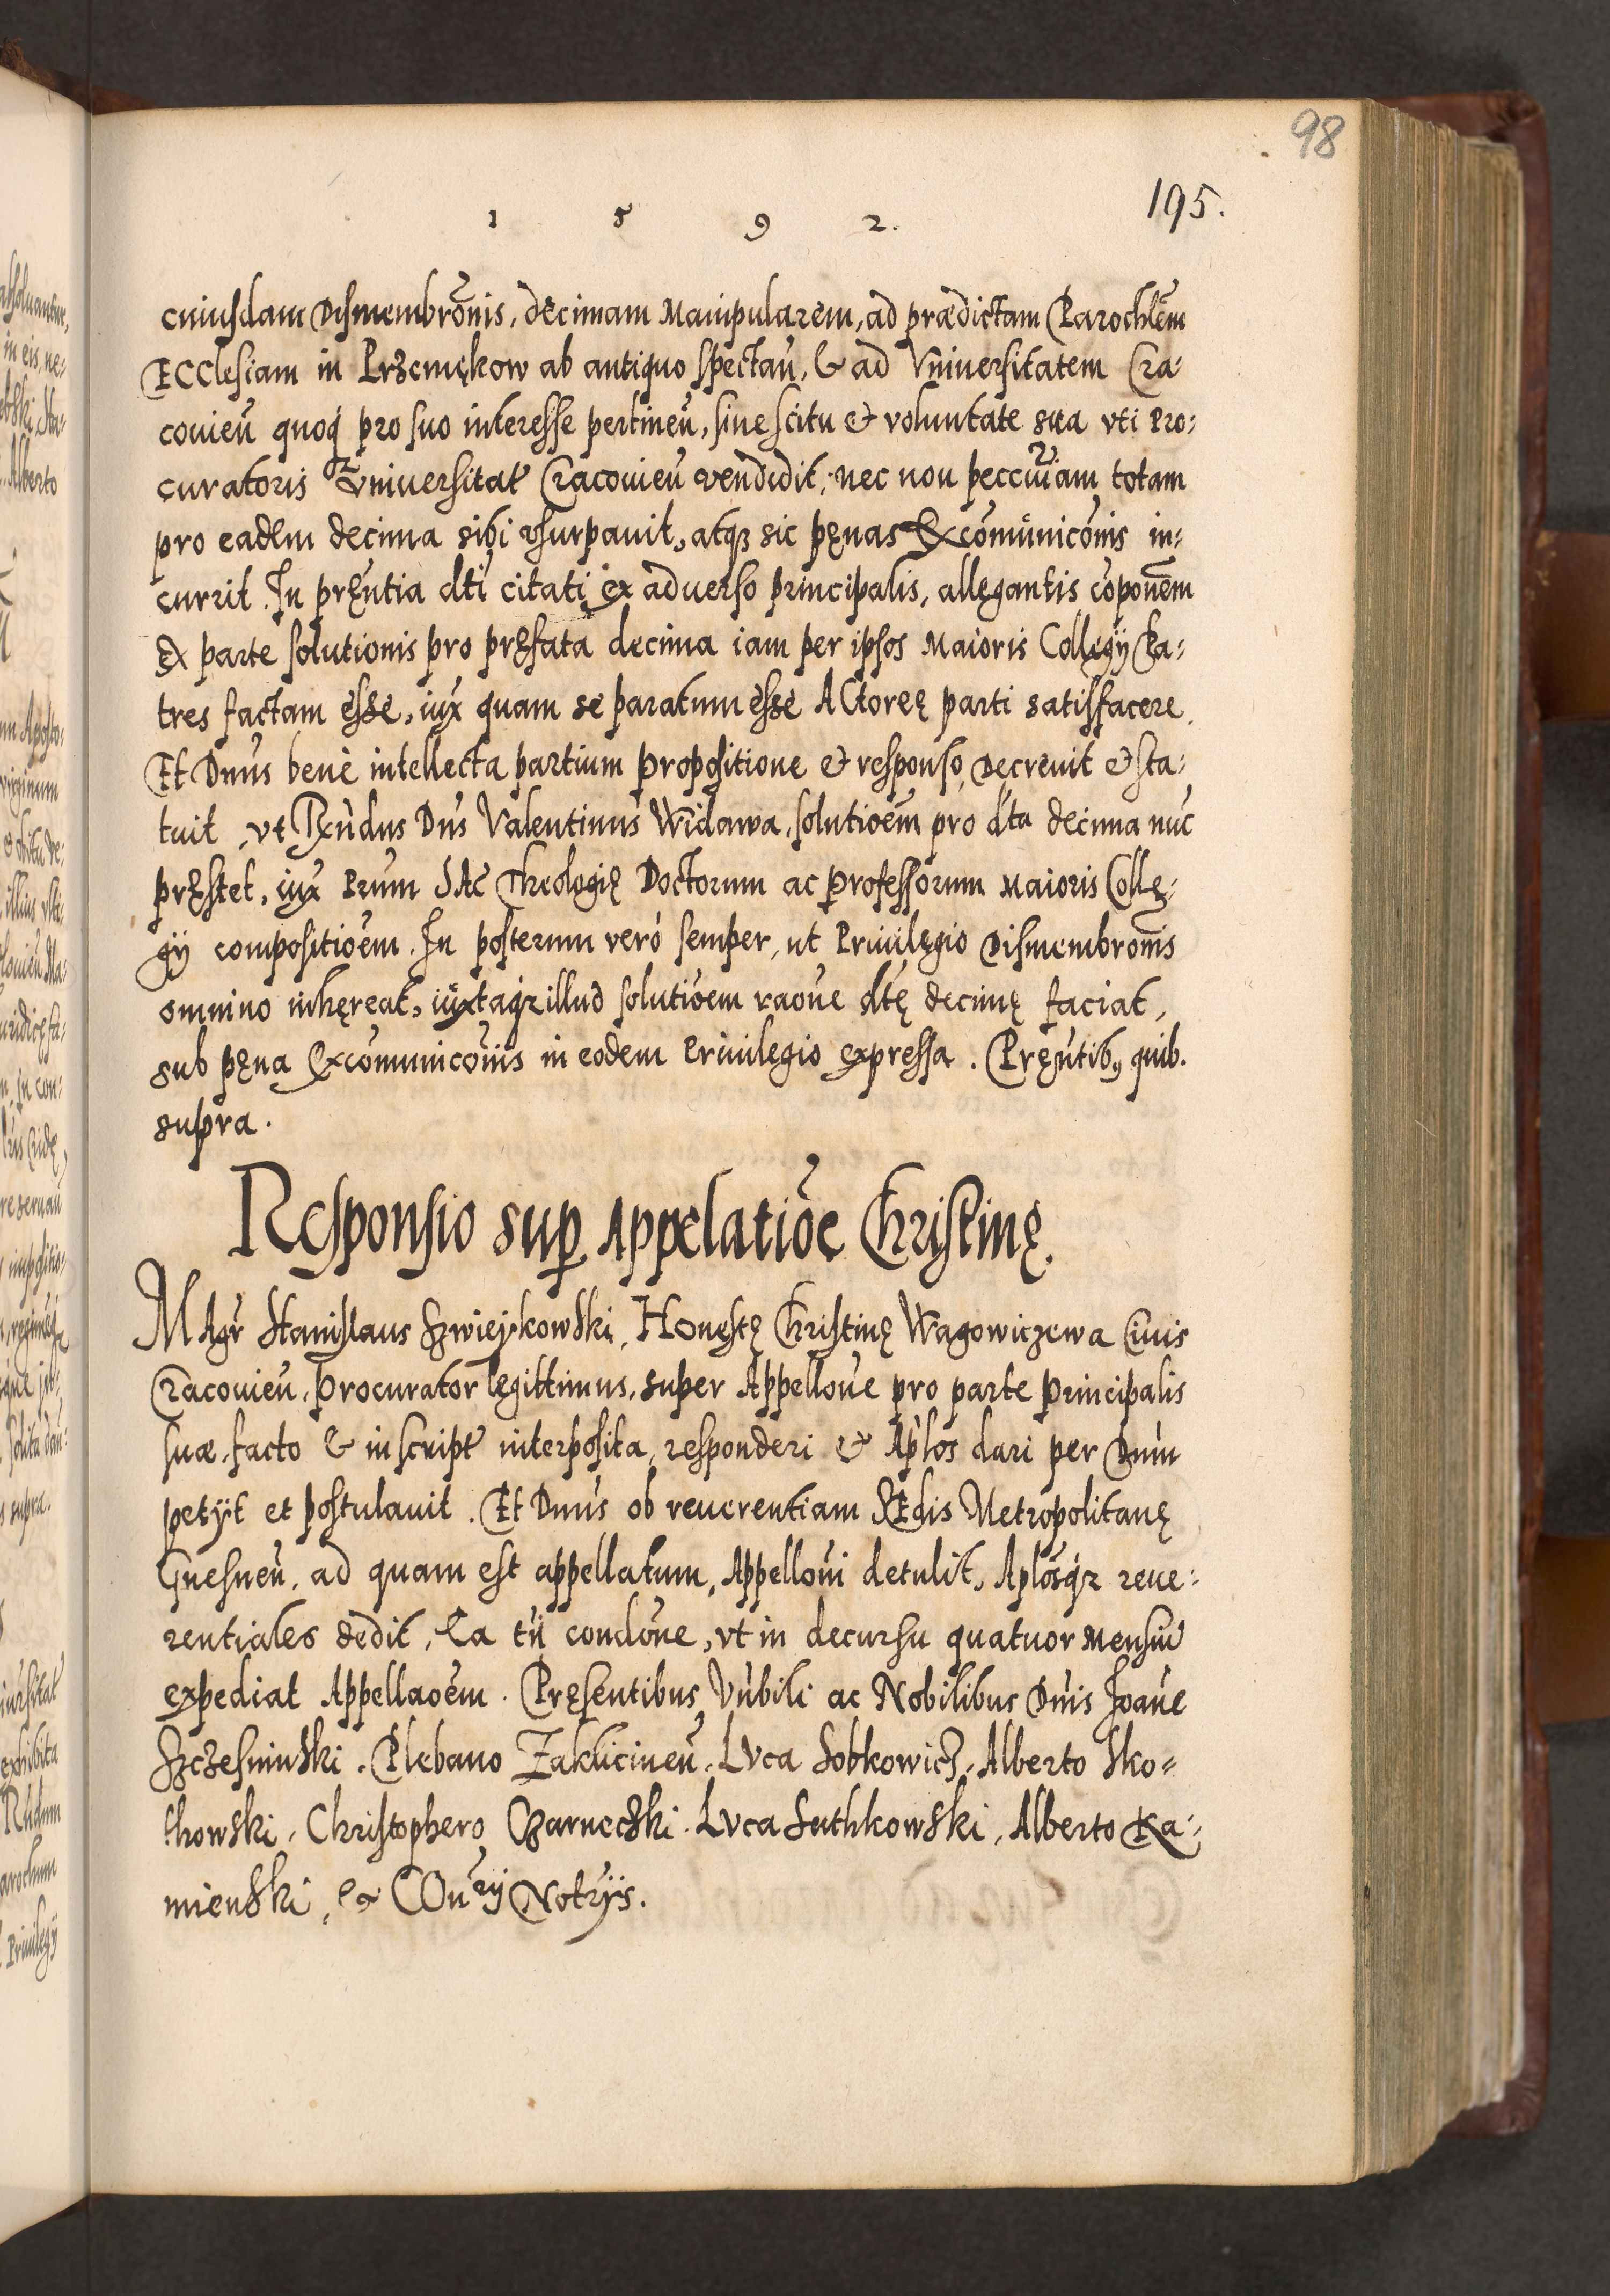 98
195.
1 5 9 2.
cuiusdam Dismembrõnis, decimam Manipularem, ad prædictam Parochlẽm
ECClesiam in Przemękow ab antiquo spectań, & ad Vniuersitatem Cra-
couień quoq́ pro suo interesse pertineń, sine scitu & voluntate sua vti Pro-
curatoris Vniuersitat Cracouień vendidit, nec non peccuniam totam
pro eadem decima sibi vsurpauit, atqз sic pęnas Excõmunicõnis in-
currit. In pręntia dti citati ex aduerso principalis, allęgantis cõponẽm
Ex parte solutionis pro pręfata decima iam per ipsos Maioris Collęgÿ Pa-
tres factam esse, iux quam se paratum esse ACtoreę parti satisfacere.
Et Dnus bene intellecta partium propositione & responso, Decreuit & sta-
tuit, vt Rndus Dns Valentinus Widawa, solutioẽm pro dta decima nuc
pręstet, iux Prum SAc Theologię Doctorum ac Professorum Maioris Collę-
gÿ compositioẽm. In posterum verò semper, ut Priuilęgio Dismembronis
omnino inhęreat, iuxtaqз illud solutioem raone dtę decimę faciat,
sub pęna Excomunicõnis in eodem Priuilegio expressa. Pręntibꝰ quib.
supra.
Responsio sup Appelatiõe Christinę.
MAgr Stanislaus Szwieykowski, Honestę Christinę Wagowiczewa Ciuis
Cracouień, Procurator lęgittimus, super Appellone pro parte Principalis
suæ, facto & in script interposita, responderi & Aplos dari per Dnm
petÿt et postulauit. Et Dnus ob reuerentiam SEdis Metropolitanę
Gnesneń, ad quam est appellatum, Appelloni detulit, Aplosqз reue-
rentiales dedit, Ea tn condone, vt in decursu quatuor Mensiũ
expediat Appellaoẽm. Pręsentibus Vnbili ac Nobilibus Dnis Joane
Szczesninski. Plebano Zaklicineń. Lvca Sobkowicz, Alberto Sko-
thowski, Christophero Czarnecski. Lvca Suthkowski, Alberto Ka-
mienski, & COnrÿ Notrÿs.